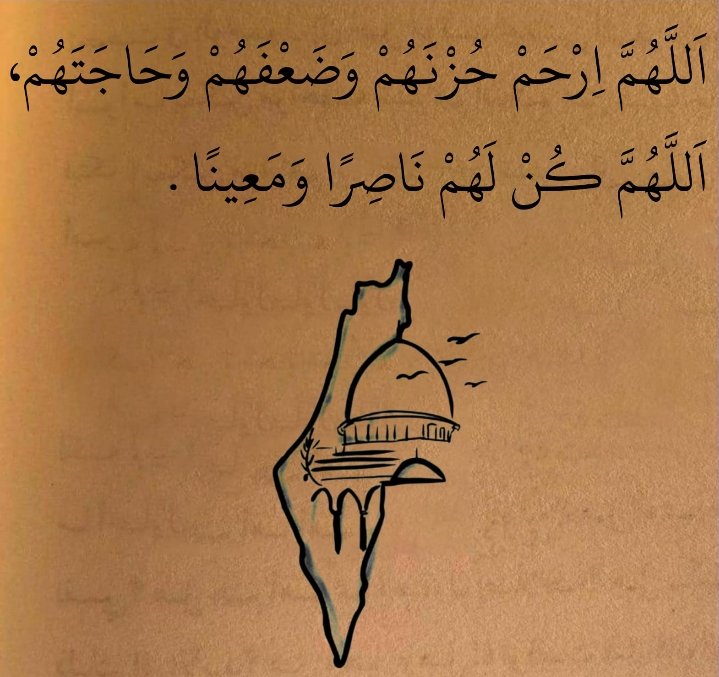 اَللَّهُمَّ اِرْحَمْ حُزْنَهُمْ وَضَعْفَهُمْ وَحَاجَتَهُمْ،
اَللَّهُمَّ كُنْ لَهُمْ نَاصِرًا وَمَعِينًا .